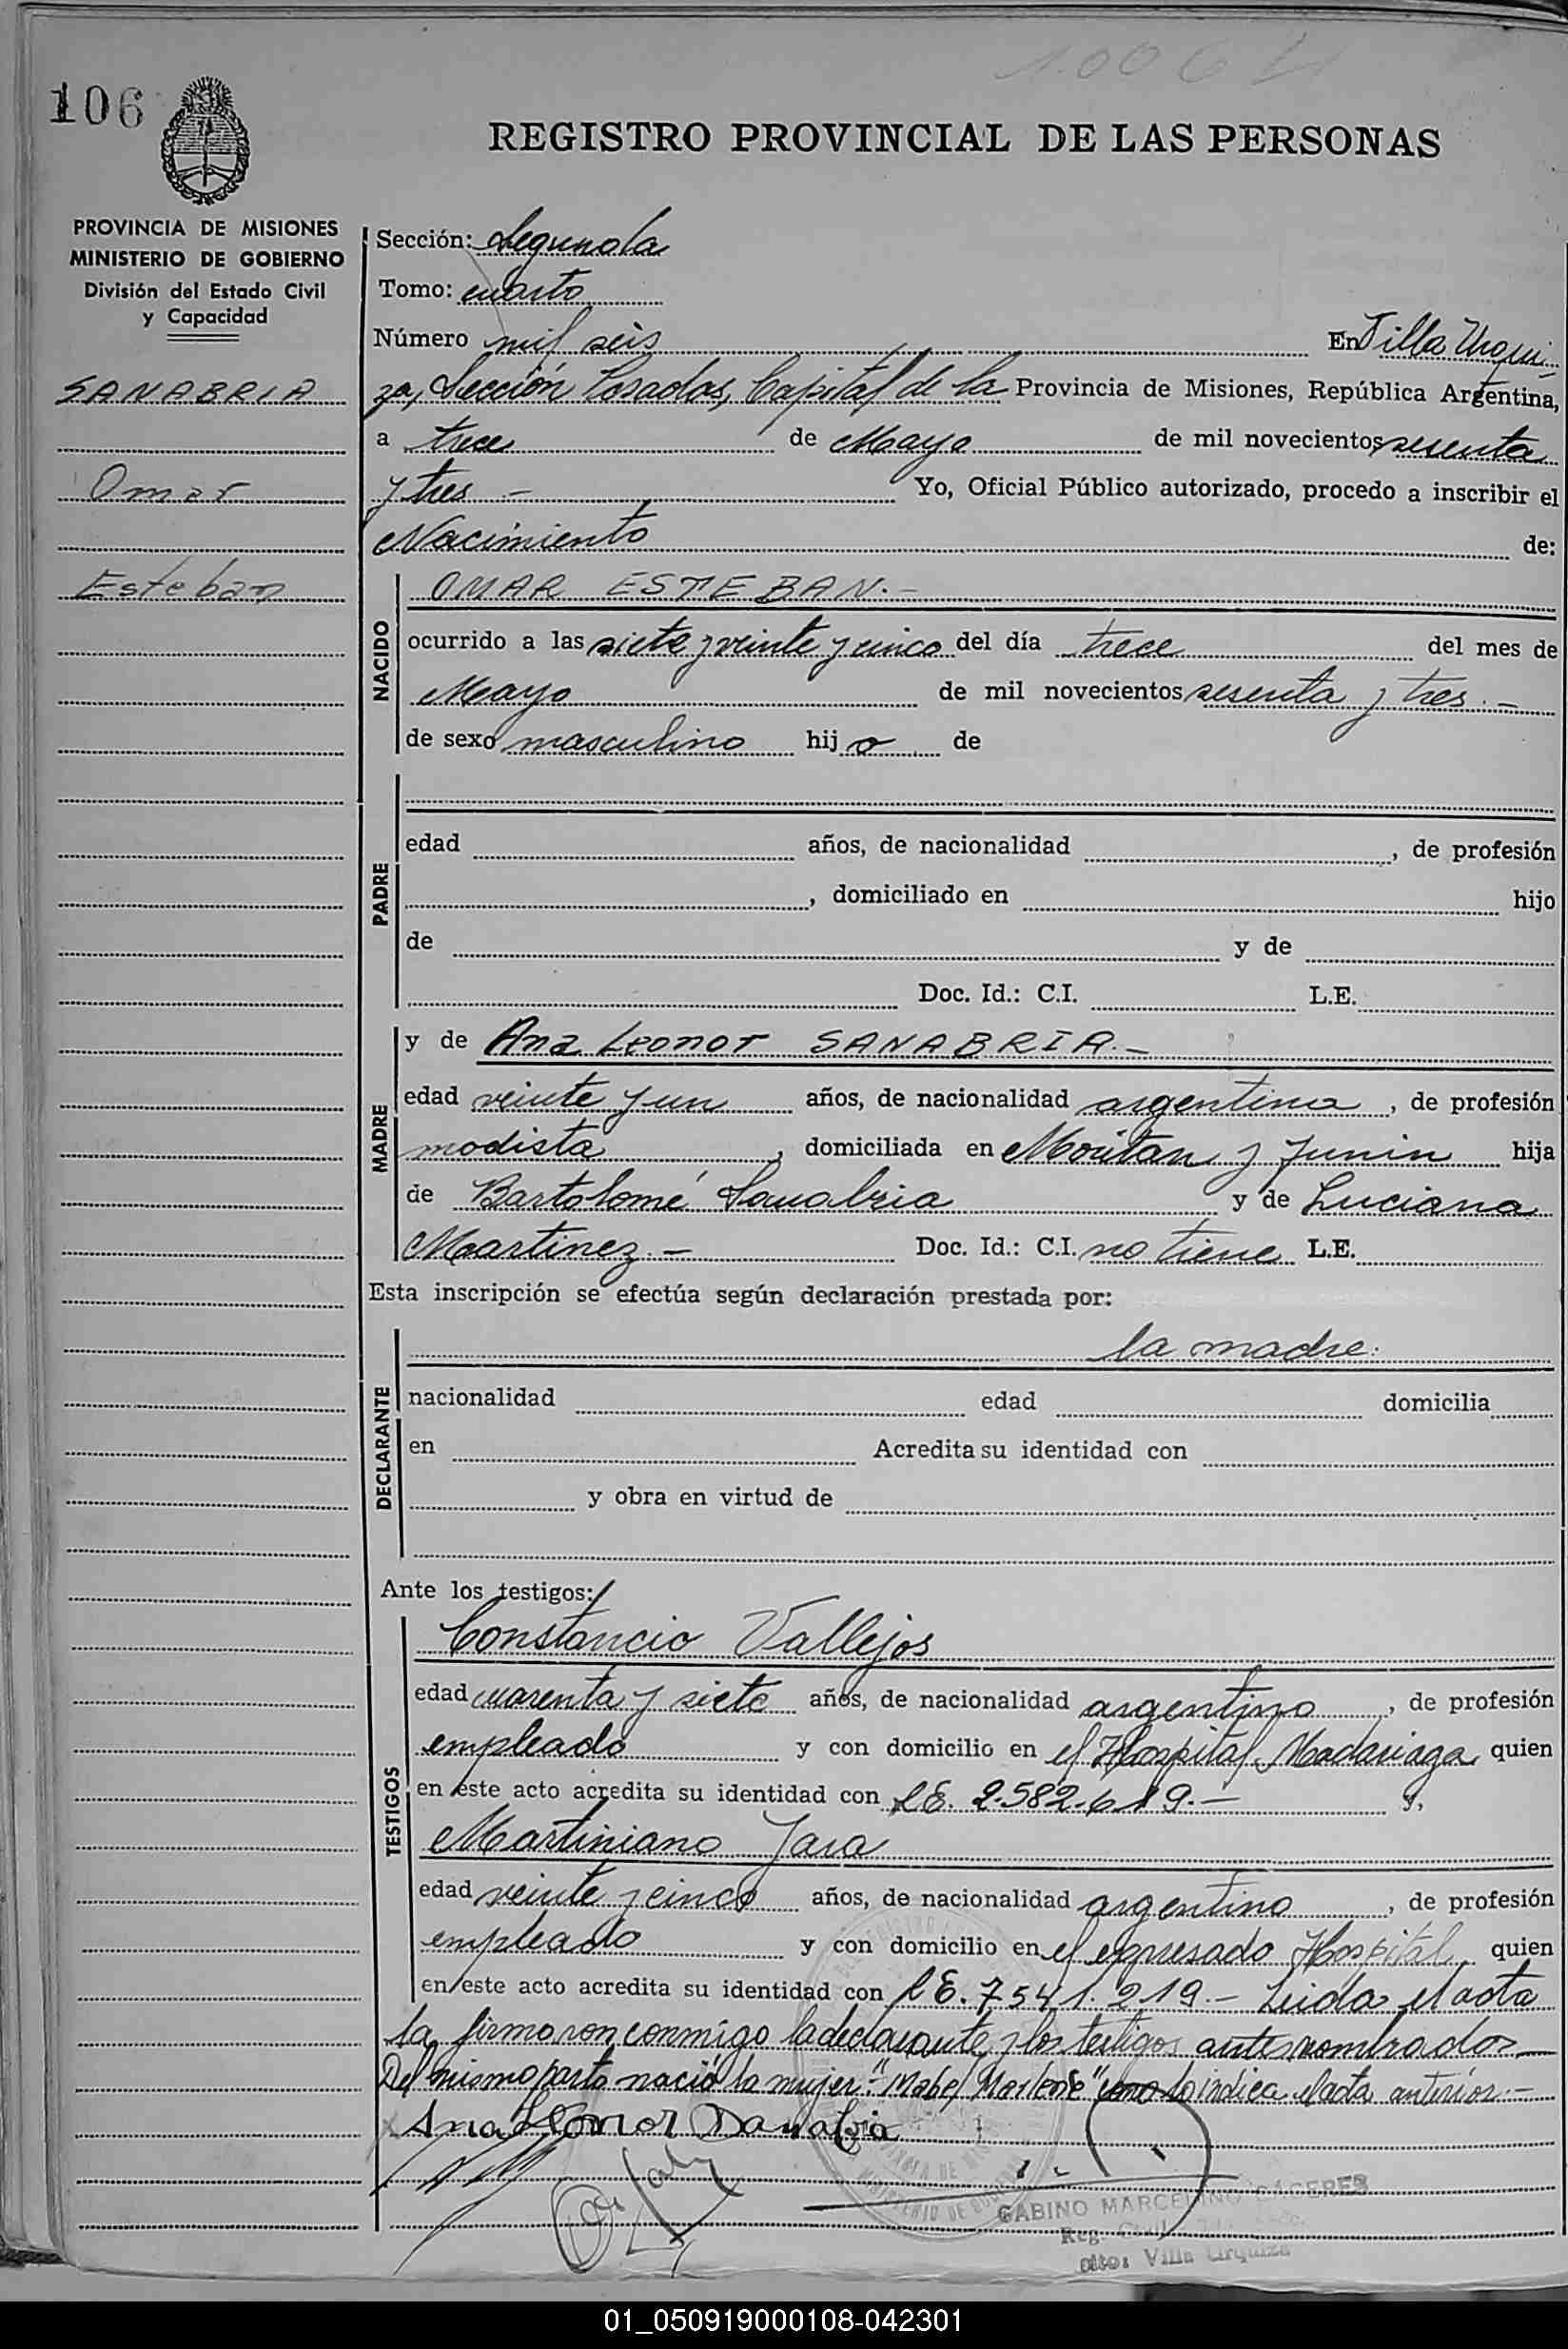 10064
106
REGISTRO PROVINCIAL DE LAS PERSONAS
PROVINCIA DE MISIONES
MINISTERIO DE GOBIERNO
División del Estado Civil
y Capacidad
SANABRIA
Omar
Esteban
Sección: Segunda
Tomo: cuarto
Número mil seis En Villa Urqui-
za, Sección Posadas, Capital de la Provincia de Misiones, República Argentina,
a trece de Mayo de mil novecientos sesenta
y tres.- Yo, Oficial Público autorizado, procedo a inscribir el
Nacimiento de:
NACIDO
OMAR ESTEBAN.-
ocurrido a las siete y veinte y cinco del día trece del mes de
Mayo de mil novecientos sesenta y tres.-
de sexo masculino hijo de
PADRE
edad años, de nacionalidad , de profesión
, domiciliado en hijo
de y de
Doc. Id.: C.I. L.E.
MADRE
y de Ana Leonor SANABRIA.-
edad veinte y un años, de nacionalidad argentina, de profesión
modista, domiciliada en y Junin hija
de Bartolomé Sanabria y de Luciana
Martinez.- Doc. Id.: C.I. no tiene L.E.
Esta inscripción se efectúa según declaración prestada por:
DECLARANTE
la madre.
nacionalidad edad domicilia
en Acredita su identidad con
y obra en virtud de
Ante los testigos:
TESTIGOS
Constancio Vallejos
edad cuarenta y siete años, de nacionalidad argentino, de profesión
empleado y con domicilio en el Hospital Madariaga quien
en este acto acredita su identidad con LE. 2.582.619.- y,
Martiniano Jara
edad veinte y cinco años, de nacionalidad argentino, de profesión
empleado y con domicilio en el expresado Hospital quien
en este acto acredita su identidad con LE. 7541.219.- Leida el acta
la firmaron conmigo la declarante y los testigos antes nombrados
Del mismo parto nació la mujer.- "Mabel Marlene" como lo indica el acta anterior.-
Ana Leonor Sanabria
GABINO MARCELINO CACERES
Reg. Civil
Villa Urquiza
01_050919000108-042301